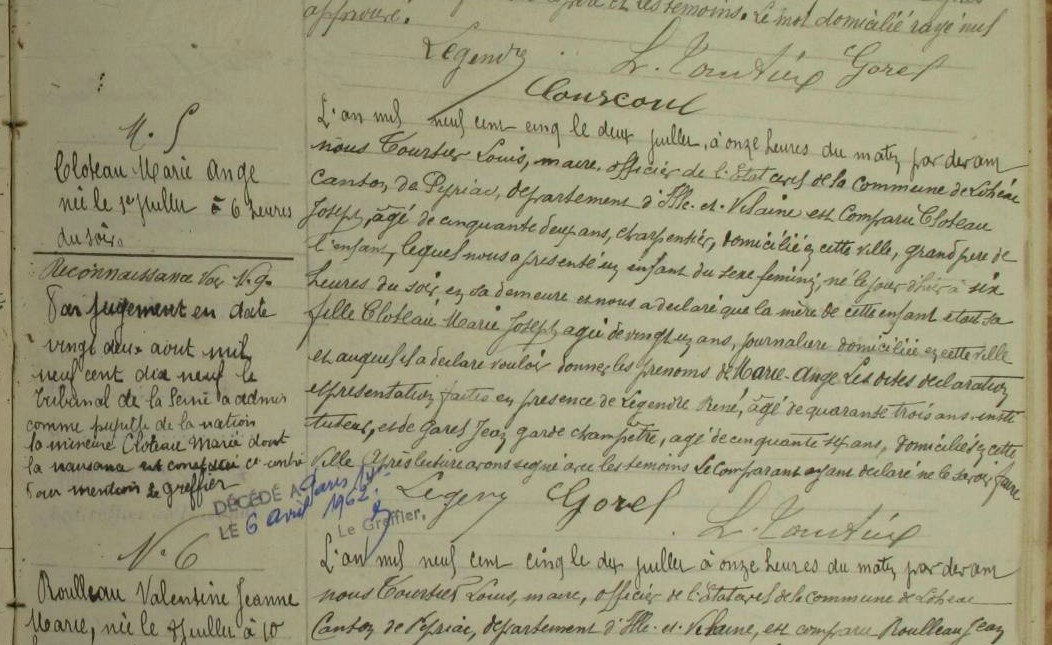 et les témoins. Le mot domicilié rayé nul
approuvé.
Legendre L. Tourtier Gorel
Couscoul
N. 5
Cloteau Marie Ange
née le 1er juillet à 6 heures
du soir.
Reconnaissance Voir N. 9.
Par jugement en date
vingt deux aout mil
neuf cent dix neuf le
Tribunal de la Seine a admis
comme pupille de la nation
la mineure Cloteau Marie dont
la naissance est constatée ci contre
Pour mention Le greffier
DÉCÉDÉ A Paris 14e
LE 6 avril 1962.
Le Greffier,
L'an mil neuf cent cinq le deux juillet, à onze heures du matin par devant
nous Tourtier Louis, maire, officier de l'Etat civil de la Commune de Lohéac
Canton de Pipriac, département d'Ille-et-Vilaine est comparu Cloteau
Joseph, âgé de cinquante deux ans, charpentier, domicilié en cette ville, grand père de
l'enfant, lequel nous a présenté un enfant du sexe féminin, né le jour d'hier à six
heures du soir en sa demeure et nous a déclaré que la mère de cette enfant etait sa
fille Cloteau Marie Joseph agée de vingt un ans, journalière domiciliée en cette ville
et auquel il a déclaré vouloir donner les prénoms de Marie-Ange Les dites déclaration
et présentation faites en présence de Legendre René, âgé de quarante trois ans insti
tuteur, et de Gorel Jean garde champêtre, agé de cinquante ans, domiciliés en cette
ville Après lecture avons signé avec les témoins Le comparant ayant déclaré ne le savoir faire
Legendre Gorel L. Tourtier
N. 6
Roulleau Valentine Jeanne
Marie, née le 9 juillet à 10
L'an mil neuf cent cinq le dix juillet à onze heures du matin par devant
nous Tourtier Louis, maire, officier de l'Etat civil de la commune de Lohéac
Canton de Pipriac, département d'Ille-et-Vilaine, est comparu Roulleau Jean